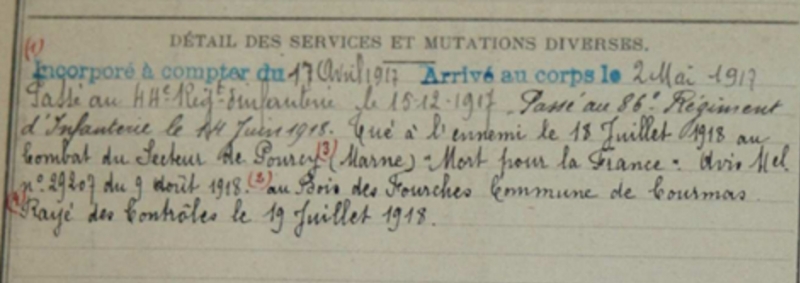 DÉTAIL DES SERVICES ET MUTATIONS DIVERSES.
(1)
Incorporé à compter du 17 Avril 1917 Arrivé au corps le 2 Mai 1917
Passé au 44e Régt d'infanterie le 15-12-1917. Passé au 86e Régiment
d'Infanterie le 14 Juin 1918. Tué à l'ennemi le 18 Juillet 1918 au
Combat du Secteur de Pourcy (3) (Marne) - Mort pour la France - Avis Mel
n° 29207 du 9 Août 1918. (2) au Bois des Fourches Commune de Courmas
Rayé des Contrôles le 19 Juillet 1918.